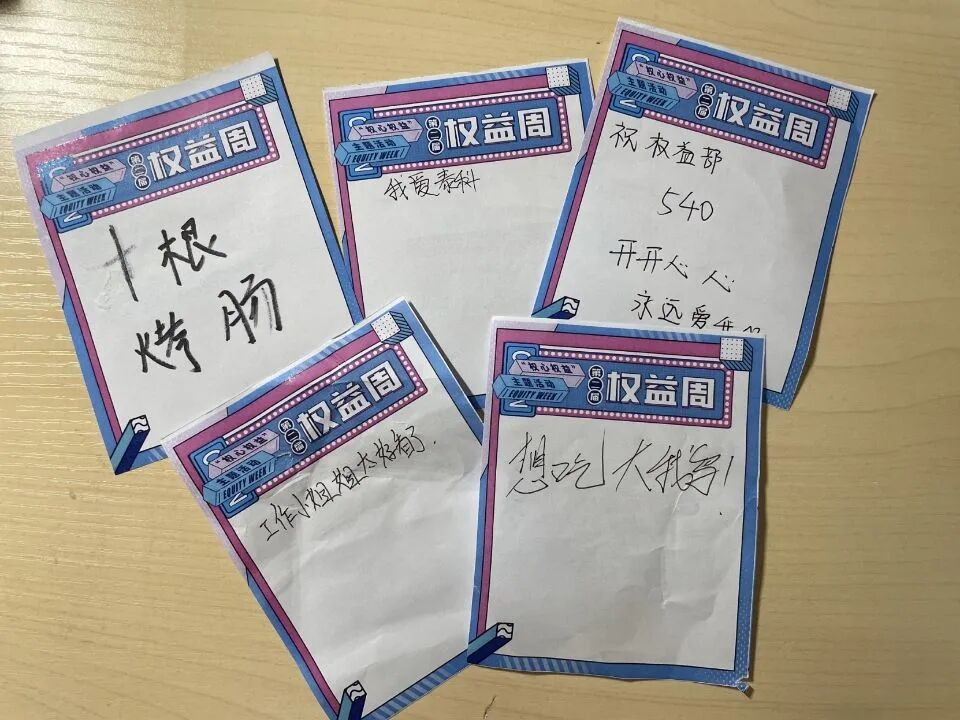 “权心权益”
主题活动
EQUITY WEEK
第二届
权益周
十根
烤肠
“权心权益”
主题活动
EQUITY WEEK
第二届
权益周
我爱泰科
“权心权益”
主题活动
EQUITY WEEK
第二届
权益周
祝权益部
540
开开心心
永远爱
“权心权益”
主题活动
EQUITY WEEK
第二届
权益周
工作小姐姐太好看了
“权心权益”
主题活动
EQUITY WEEK
第二届
权益周
想吃大鸡